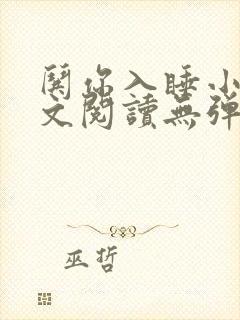 關你入睡小
文閱讀無彈
巫哲